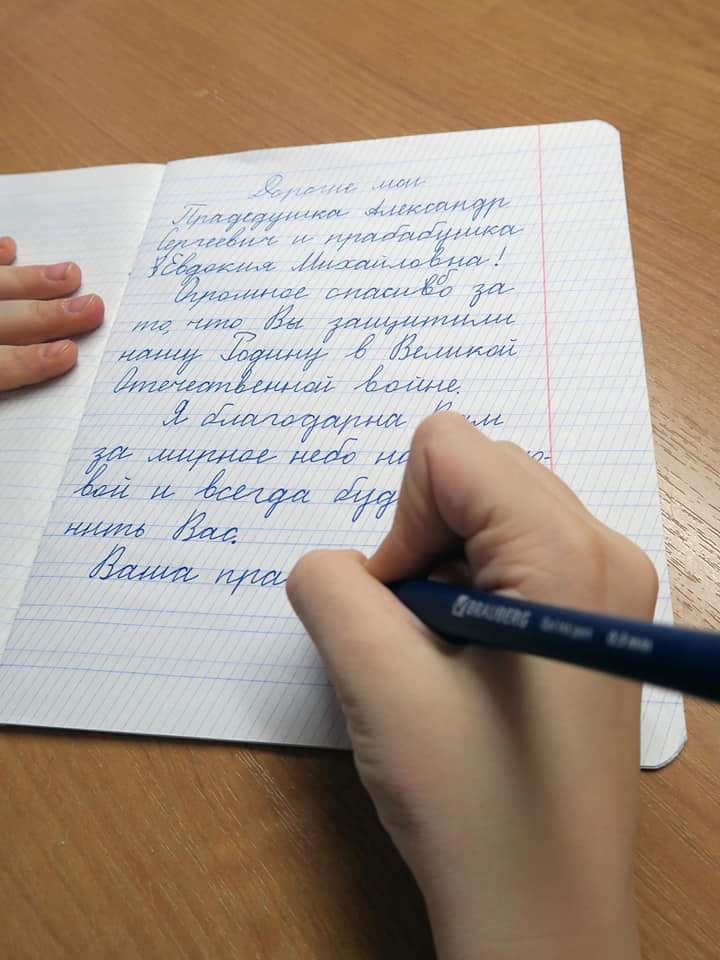 Дорогие мои
Прадедушка Александр
Сергеевич и прабабушка
Евдокия Михайловна!
Огромное спасибо за
то, что Вы защитили
нашу Родину в Великой
Отечественной войне.
Я благодарна Вам
за мирное небо
вой и всегда
нить Вас.
Ваша
BRAUBERG